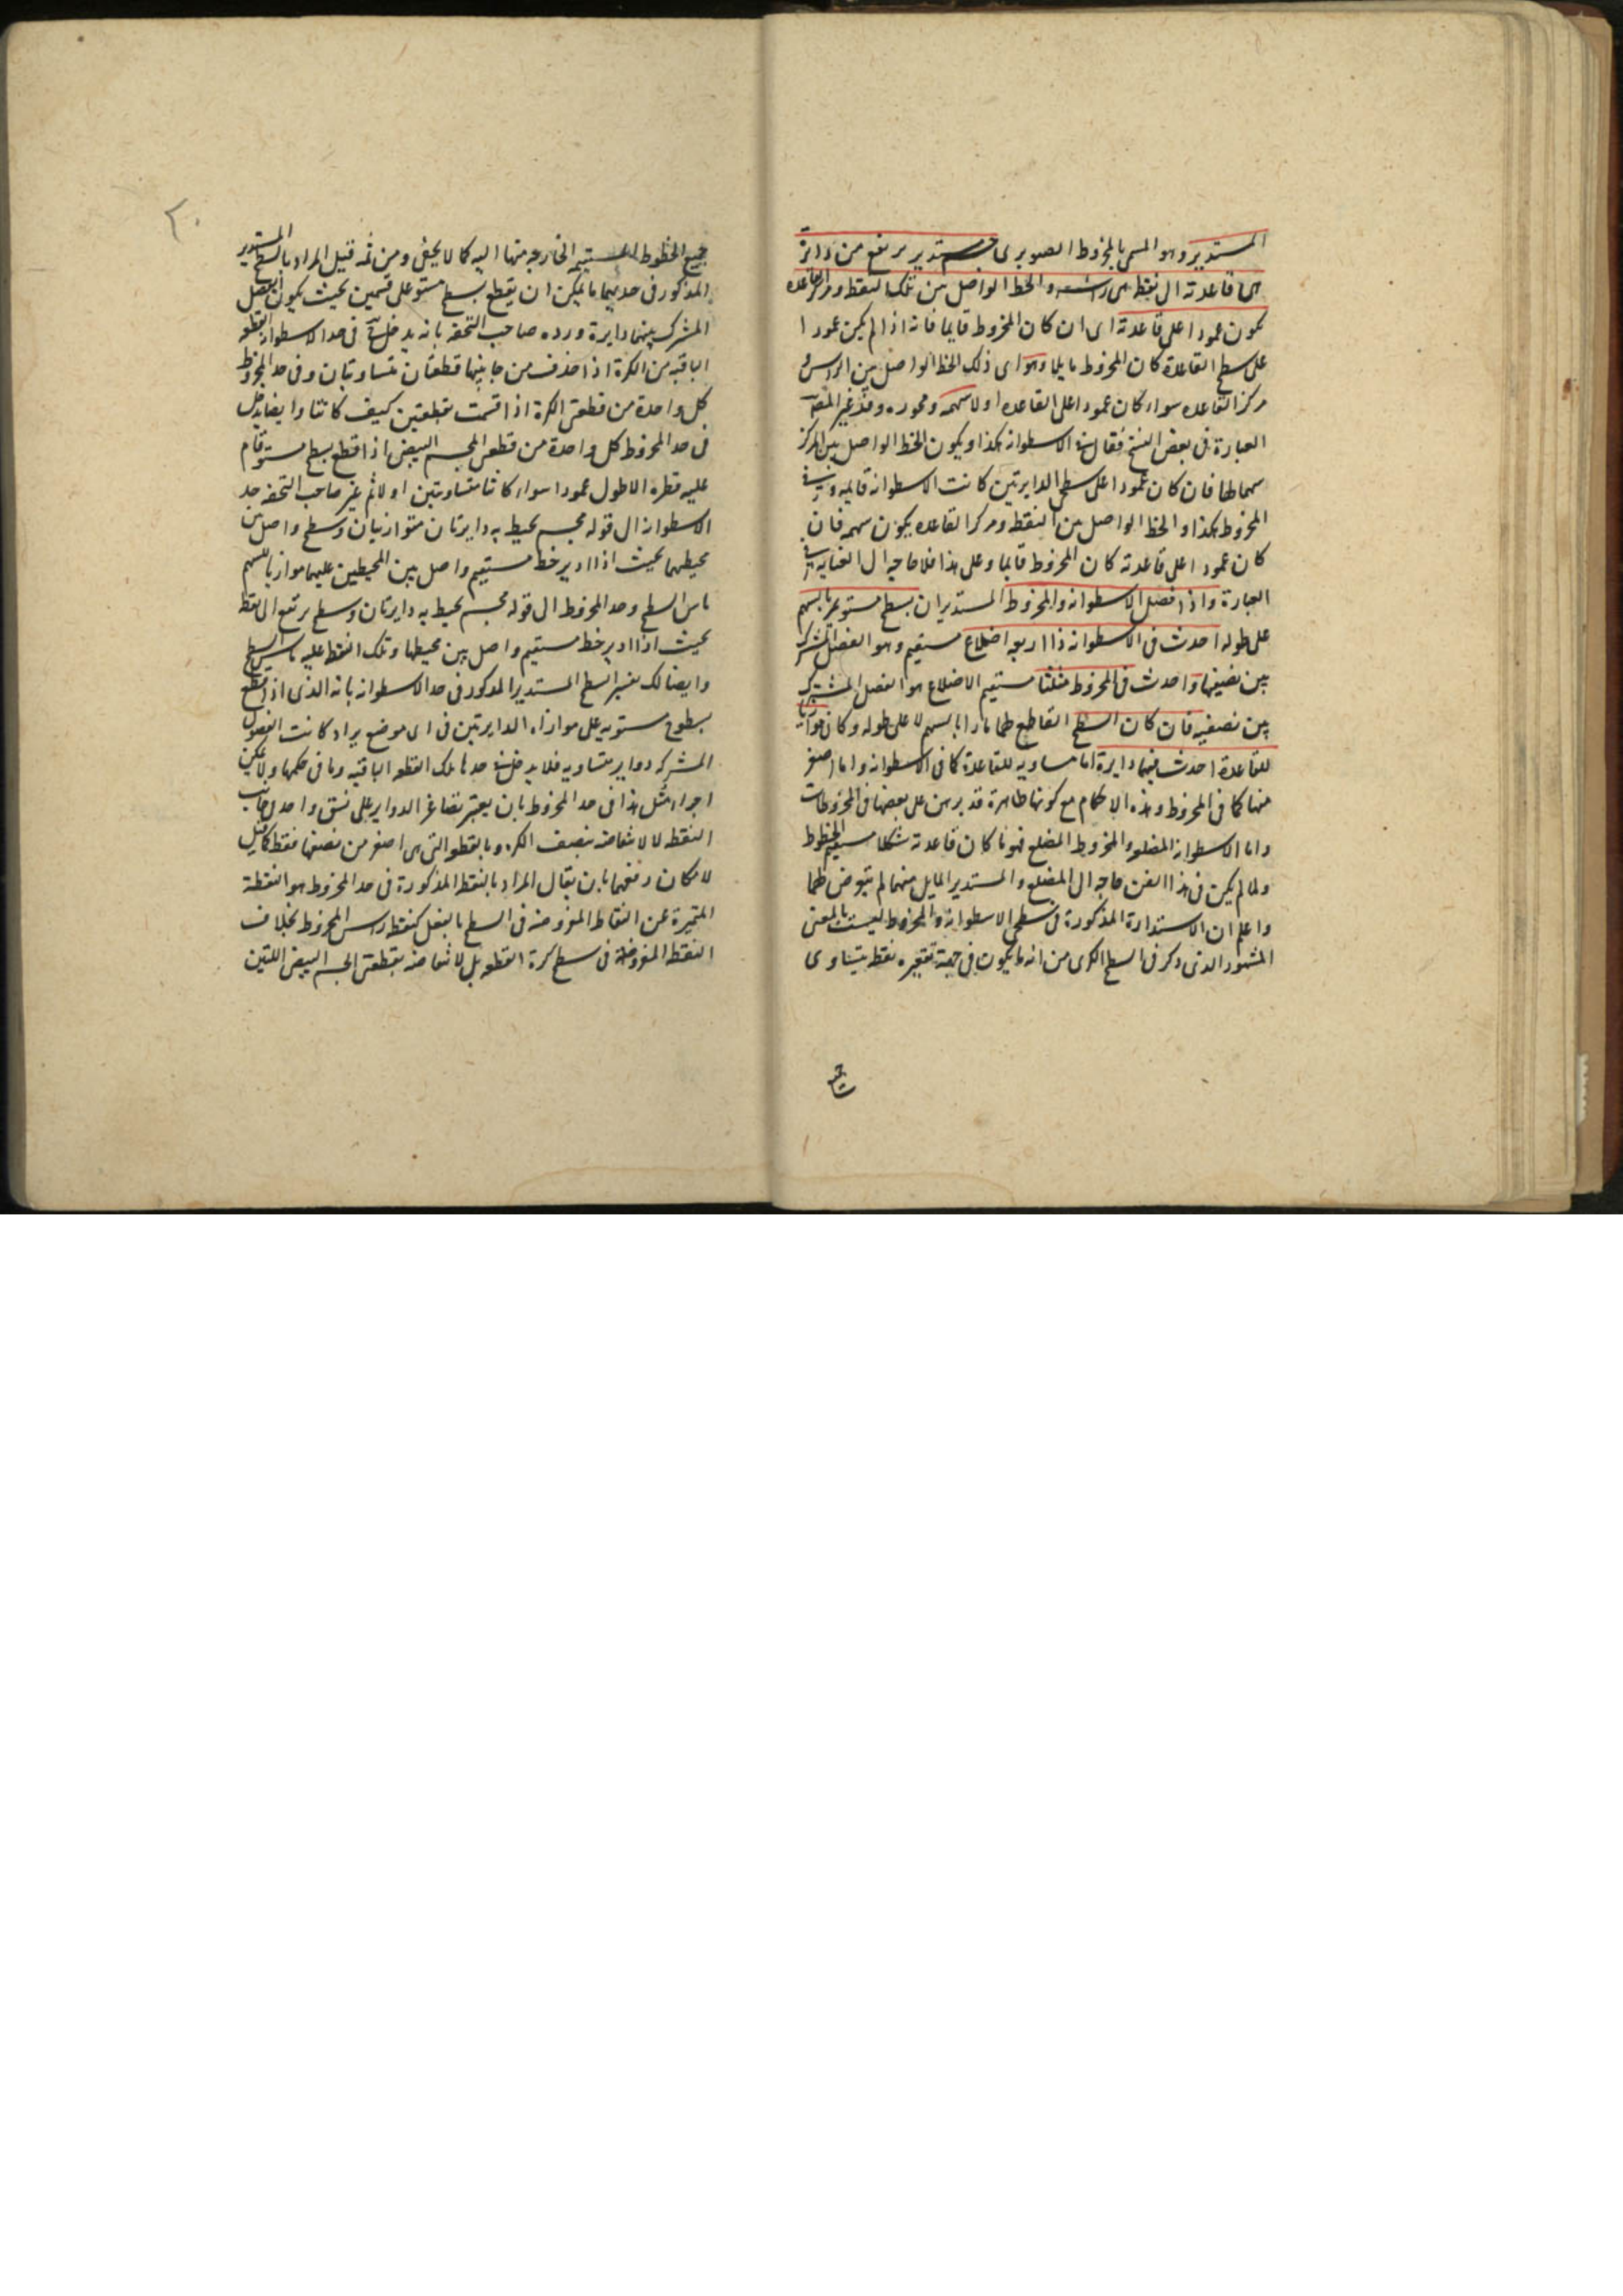 المستدير وهو المسمى بالمخروط الصنوبرى جسم مستدير مرتفع من دائرة
هى قاعدته الى نقطة هى رأسه والخط الواصل بين تلك النقطة ومركز القاعدة
يكون عمودا على قاعدته اى ان كان المخروط قايما فانه اذا لم يكن عمودا
على سطح القاعدة كان المخروط مايلا وهو اى ذلك الخط الواصل بين الراس و
مركز القاعده سواء كان عمودا على القاعده او لا سهمه ومحوره وقد غير المصـ
العبارة فى بعض النسخ فقال فى الاسطوانه هكذا ويكون الخط الواصل بين المركز
سهما لها فان كان عمودا على سطحى الدايرتين كانت الاسطوانه قايمه وفى
المخروط هكذا والخط الواصل بين النقطه ومركز القاعده يكون سهمه فان
كان عمودا على قاعدته كان المخروط قايما وعلى هذا فلا حاجه الى العنايه فى
العبارة واذا فصل الاسطوانه والمخروط المستديران بسطح مستو يمر بالسهم
على طوله احدث فى الاسطوانه ذا اربعه اضلاع مستقيم وهو الفصل المشترك
بين نصفيها واحدث فى المخروط مثلثا مستقيم الاضلاع هو الفصل المشترك
بين نصفيه فان كان السطح القاطع لهما مارا بالسهم لا على طوله وكان موازيا
للقاعدة احدث فيهما دايرة اما مساويه للقاعدة كما فى الاسطوانه واما اصغر
منها كما فى المخروط وهذه الاحكام مع كونها ظاهرة قد برهن على بعضها فى المخروطات
واما الاسطوانه المضلعه والمخروط المضلع فهو ما كان قاعدته شكلا مستقيم الخطوط
ولما لم يكن فى هذا الفن حاجه الى المضلع والمستدير المايل منهما لم يتعرض لهما
واعلم ان الاستدارة المذكورة فى سطحى الاسطوانه والمخروط ليست بالمعنى
المشهور الذى ذكر فى السطح الكرى من انه ما يكون فى جهة تقعيره نقطه يتساوى
جميع الخطوط المستقيم الخارجه منها اليه كما لا يخفى ومن ثمه قيل المراد بالسطح المستدير
المذكور فى حديهما ما يمكن ان يقطع بسطح مستو على قسمين بحيث يكون الفصل
المشترك بينهما دايرة ورده صاحب التحفه بانه يدخل فى حد الاسطوانه القطعه
الباقيه من الكرة اذا حذف من جانبيها قطعتان متساويتان وفى حد المخروط
كل واحدة من قطعتى الكرة اذا قسمت بقطعتين كيف كانتا وايضا يدخل
فى حد المخروط كل واحدة من قطعتى المجسم البيضى اذا قطع بسطح مستو قام
عليه قطره الاطول عمودا سواء كانتا متساويتين او لا ثم غير صاحب التحفه حد
الاسطوانه الى قوله مجسم يحيط به دايرتان متوازيتان وسطح واصل بين
محيطهما بحيث اذا ادير خط مستقيم واصل بين المحيطين عليهما موازيا للسهم
ماس السطح وحد المخروط الى قوله مجسم يحيط به دايرتان وسطح مرتفع الى نقطه
بحيث اذا ادير خط مستقيم واصل بين محيطها وتلك النقطه عليه ماس السطح
وايضا لك تفسير السطح المستدير المذكور فى حد الاسطوانه بانه الذى اذا قطع
بسطوح مستويه على موازاه الدايرتين فى اى موضع يراد كانت الفصول
المشتركه دواير متساويه فلا يدخل فى حدها تلك القطعه الباقيه وما فى حكمها ولا يمكن
اجراء مثل هذا فى حد المخروط بان يعتبر تصاغر الدواير على نسق واحد فى جانب
النقطه لا لانتقاضه بنصف الكره وبالقطعه التى هى اصغر من نصفها فقط كما قيل
لامكان دفعهما بان يقال المراد بالنقطه المذكورة فى حد المخروط هو النقطة
المتميزة عن النقاط المفروضه فى السطح بالفعل كنقطه راس المخروط بخلاف
النقطه المفروضه فى سطح كرة القطعه بل لانتقاضه بقطعتى الجسم البيضى اللتين